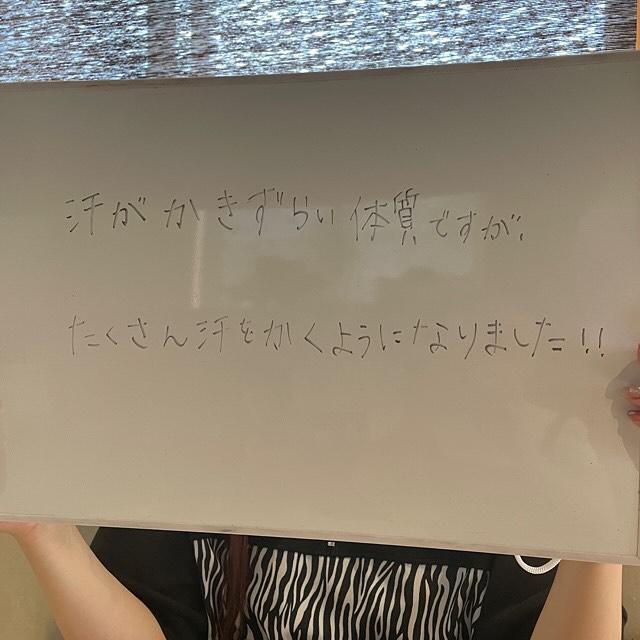 汗がかきずらい体質ですが、
たくさん汗をかくようになりました!!